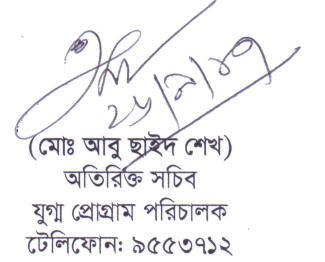 (মোঃ আবু ছাইদ শেখ)
অতিরিক্ত সচিব
যুগ্ম প্রোগ্রাম পরিচালক
টেলিফোন: ৯৫৫৩৭১২